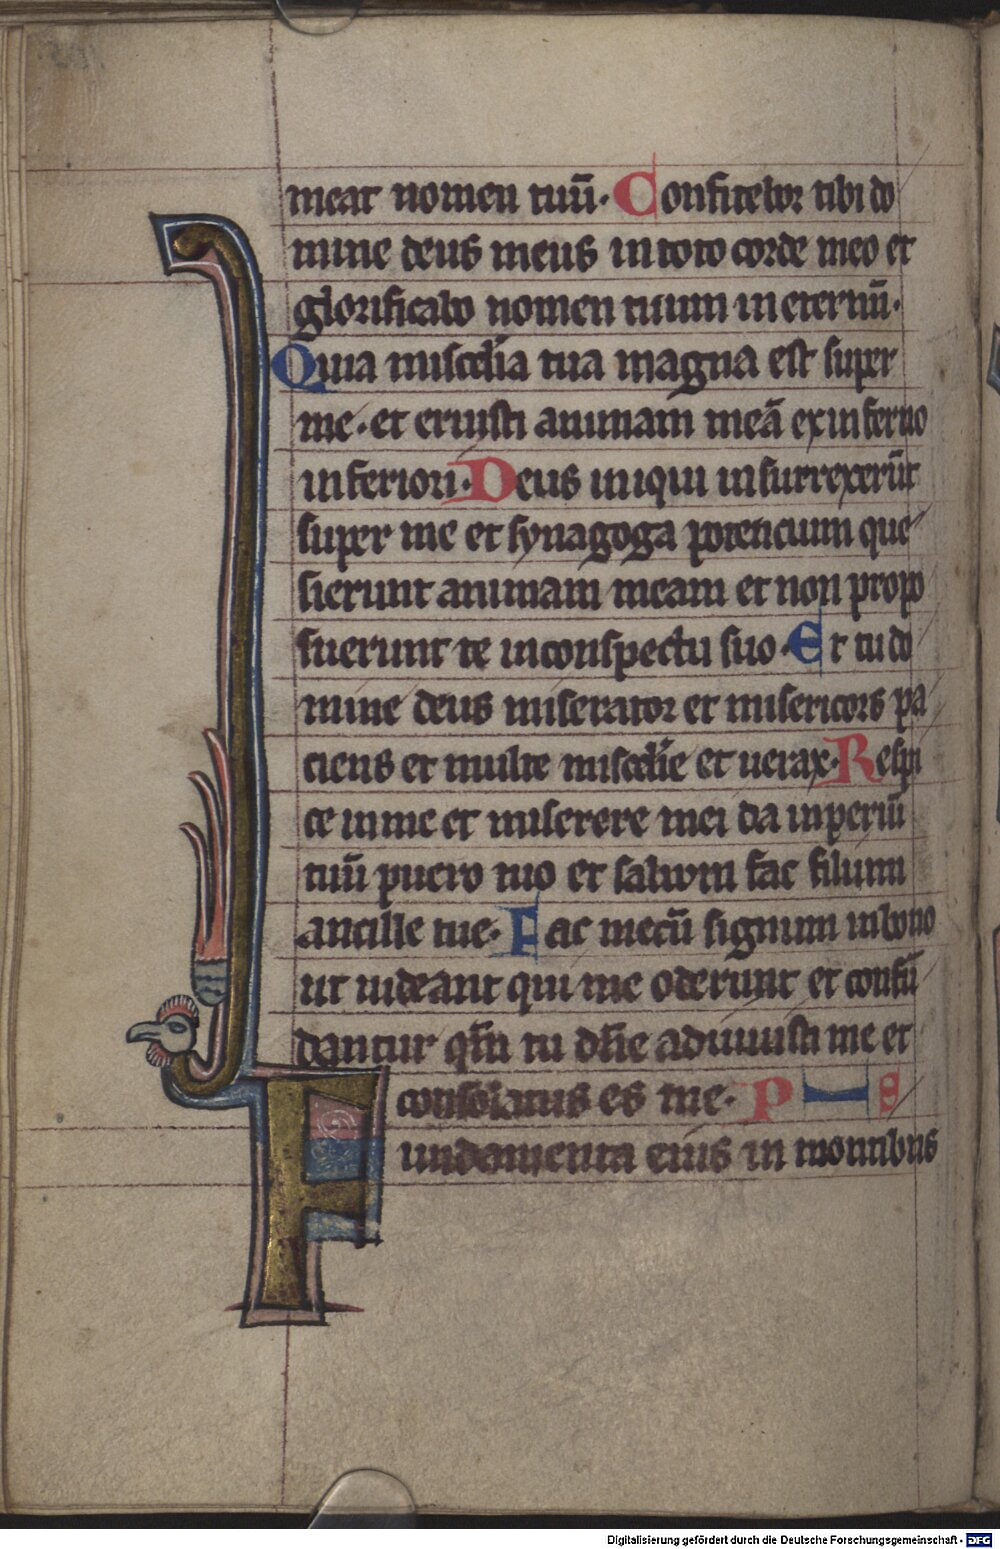 meat nomen tuū. Confitebor tibi do
mine deus meus in toto corde meo et
glorificabo nomen tuum in eternū.
Quia mis̄cdia tua magna est super
me. et eruisti animam meā ex inferno
inferiori. Deus iniqui insurrexerūt
super me et synagoga potencium que
sierunt animam meam et non propo
suerunt te in conspectu suo. Et tu do
mine deus miserator et misericors pa
ciens et multe mis̄cdie et uerax. Respi
ce in me et miserere mei da inperiū
tuū puero tuo et saluum fac filium
ancille tue. Fac mecū signum in bono
ut uideant qui me oderunt et confū
dantur qm̄ tu dn̄e adiuuisti me et
consolatus es me. PS
Fundamenta eius in montibus
Digitalisierung gefördert durch die Deutsche Forschungsgemeinschaft - DFG